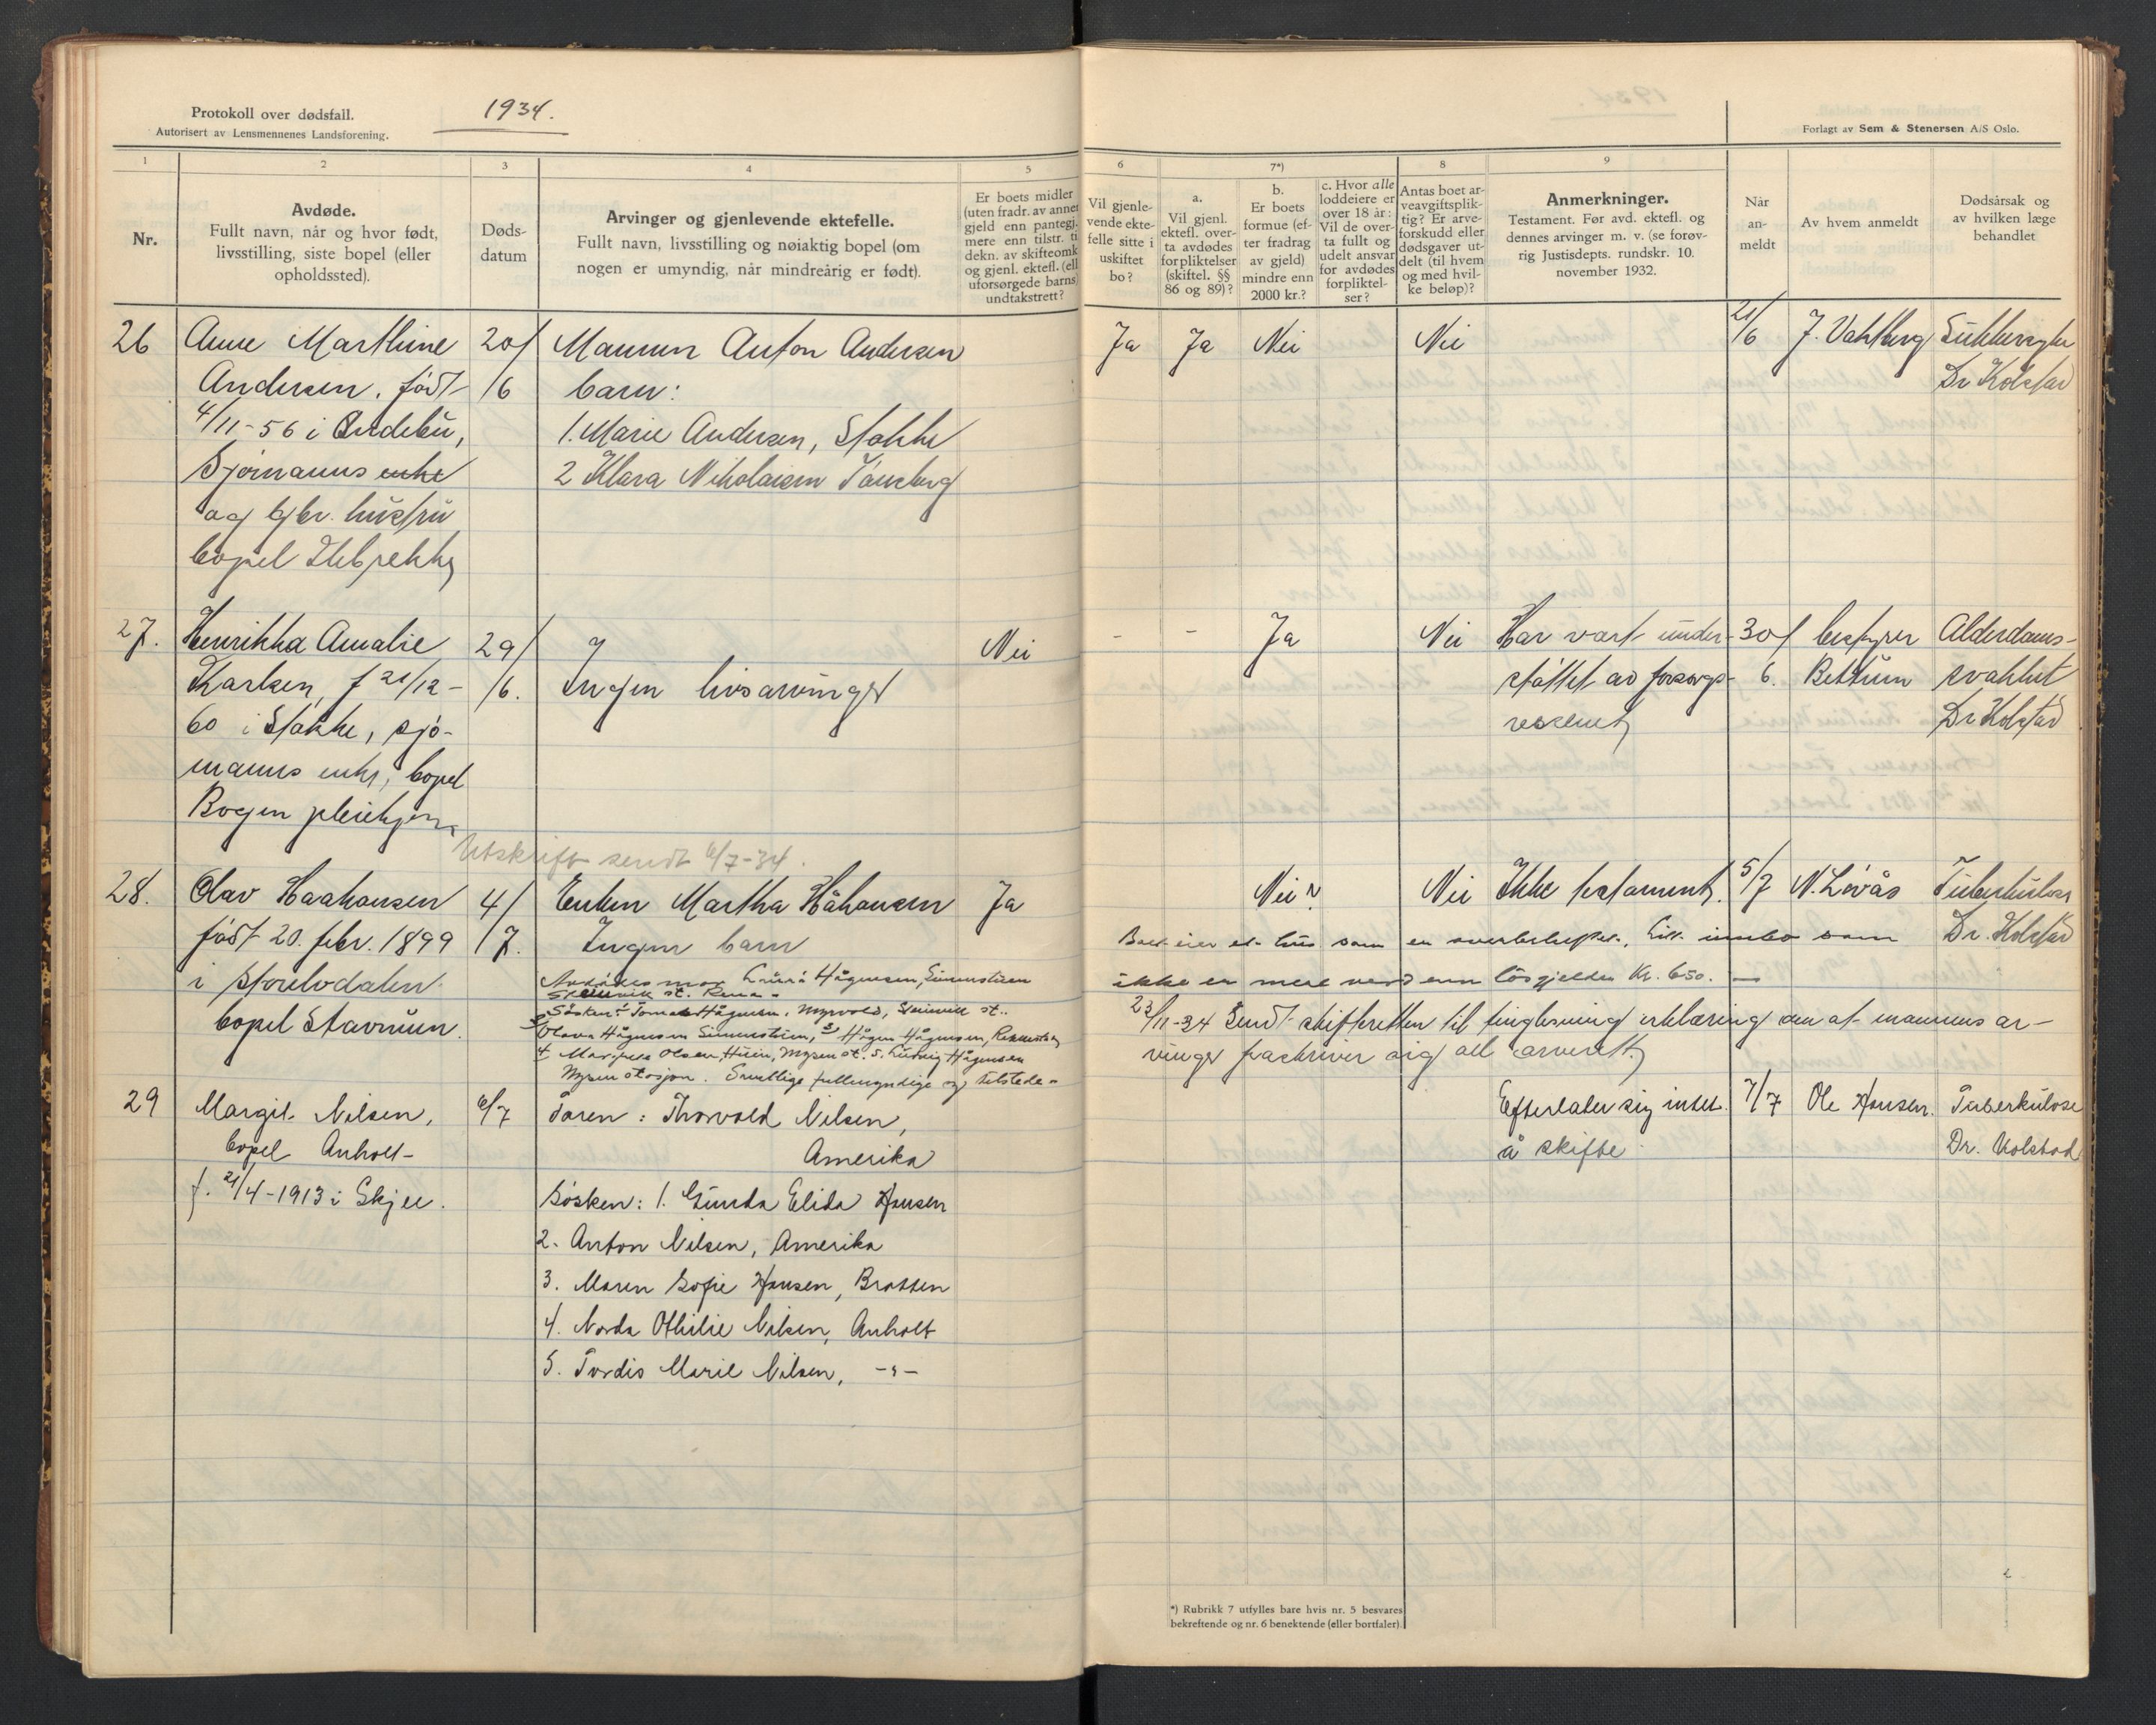 Protokoll over dødsfall.
Autorisert av Lensmennenes Landsforening.
1934.
Forlagt av Sem & Stenersen A/S Oslo.
1
2
3
4
5
6
7*)
8
9
Nr.
Avdøde.
Fullt navn, når og hvor født,
livsstilling, siste bopel (eller
opholdssted).
Døds-
datum
Arvinger og gjenlevende ektefelle.
Fullt navn, livsstilling og nøiaktig bopel (om
nogen er umyndig, når mindreårig er født).
Er boets midler
(uten fradr. av annen
gjeld enn pantegj.
mere enn tilstr. ti
dekn. av skifteomk
og gjenl. ektefl. (ell
uforsørgede barns)
undtakstrett?
Vil gjenle-
vende ekte-
felle sitte i
uskiftet
bo?
a.
Vil gjenl.
ektefl. over-
ta avdødes
forpliktelser
(skiftel. §§
86 og 89)?
b.
Er boets
formue (ef-
ter fradrag
av gjeld)
mindre enn
2000 kr.?
c. Hvor alle
loddeiere er
over 18 år:
Vil de over-
ta fullt og
udelt ansvar
for avdødes
forpliktel-
ser?
Antas boet ar-
veavgiftsplik-
tig? Er arve-
forskudd eller
dødsgaver ut-
delt (til hvem
og med hvil-
ke beløp)?
Anmerkninger.
Testament. Før avd. ektefl. og
dennes arvinger m. v. (se forøv-
rig Justisdepts. rundskr. 10.
november 1932.
Når
an-
meldt
Av hvem anmeldt
Dødsårsak og
av hvilken læge
behandlet
26
Anne Marthine
Andersen, født
4/11-56 i Andebu,
Sjømanns enke
og gbr. hustru
bopel Ilebrekke
20/
/6
Mannen Anton Andersen
barn:
1. Marie Andersen, Stokke
2 Klara Nikolaisen Tønsberg
Ja
Ja
Nei
Nei
21/6
J. Vahlberg
Sukkersyke
Dr Kolstad
27.
Henrikka Amalie
Karlsen, f 21/12-
60 i Stokke, sjø-
manns enke, bopel
Bogen pleiehjem
29/
/6.
Ingen livsarvinger
Nei
-
-
Ja
Nei
Har vært under-
støttet av forsorgs-
vesenet
30/
6.
bestyrer
Bettum
Alderdoms-
svakhet
Dr Kolstad
Utskrift sendt 6/7-34.
28.
Olav Haakansen
født 20. febr. 1899
i Storelvdalen
bopel Stavnum.
4/
/7.
Enken Martha Håkansen
Ingen barn
Avdødes mor
Steinvik st. Rena
Søsken: 1
Myrvold, Steinvik st.
Olsen,
Mysen st. 5. Ludvig Hågensen
Mysen stasjon. Samtlige fullmyndige og tilstede
Ja
Nei?
Nei
Ikke testament.
5/7
N. Løvås
Tuberkulose
Dr. Kolstad
Boet eier et hus som er overbeheftet. Litt innbo som
ikke er mere verd enn løsgjelden Kr. 650.-
23/11-34 Sendt skifteretten til tinglesning erklæring om at mannens ar-
vinger fraskriver sig all arverett.
29
Margit Nilsen,
bopel Anholt
f. 21/4-1913 i Skjee.
6/7
Faren: Thorvald Nilsen,
Amerika
Søsken: 1. Gunda Elida Hansen
2. Anton Nilsen, Amerika
3. Maren Sofie Hansen, Bratten
4. Norda Othilie Nilsen, Anholt
5. Tordis Marie Nilsen, -"-
Efterlater sig intet
å skifte
7/7
Ole Hansen.
Tuberkulose
Dr. Kolstad
*) Rubrikk 7 utfylles bare hvis nr. 5 besvares
bekreftende og nr. 6 benektende (eller bortfaler).